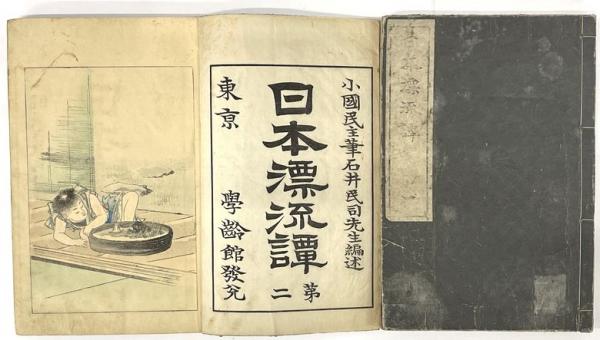 小國民主筆石井民司先生編述
日本漂流譚
第二
東京 學齡館發兌
日本漂流譚